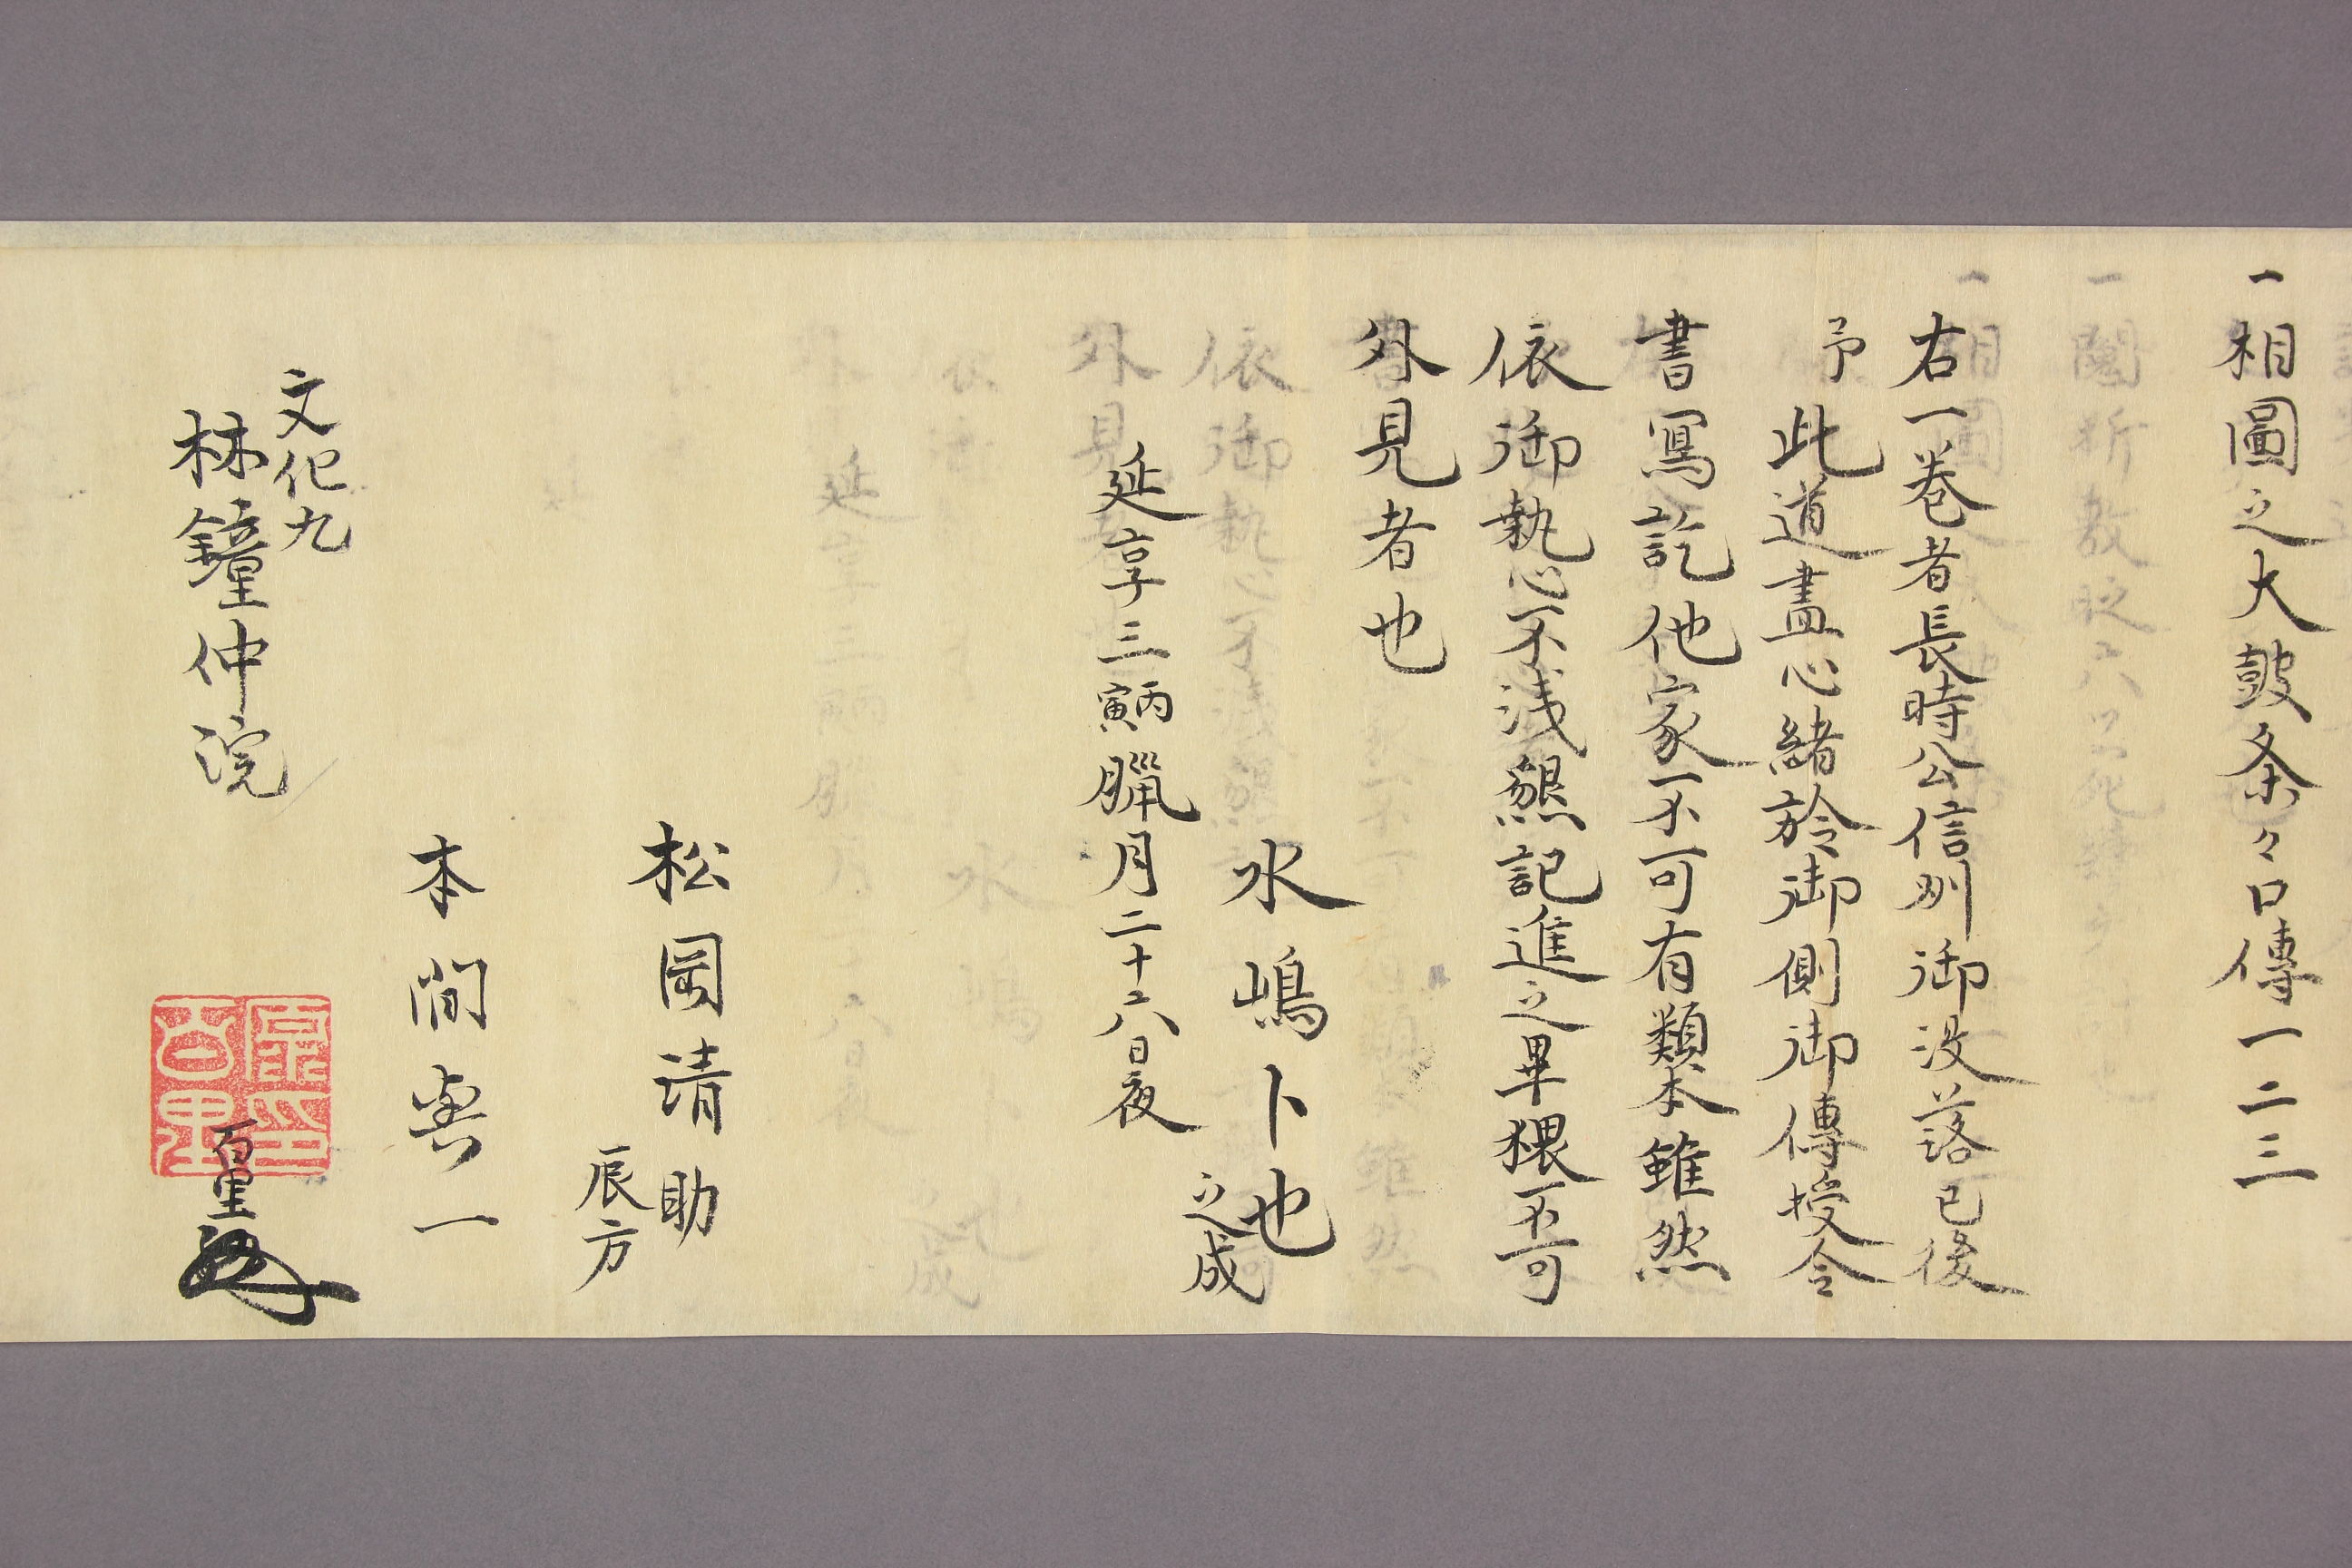 一相圖之大皷条々口傳一二三
右一巻者長時公信州御没落已後
予此道盡心緒於御側御傳授令
書寫訖他家不可有類本雖然
依御執心不浅懇記進之畢猥不可
外見者也
水嶋卜也
之成
延享三丙寅臘月二十六日夜
松岡清助
辰方
本間與一
文化九
林鐘仲浣
百里